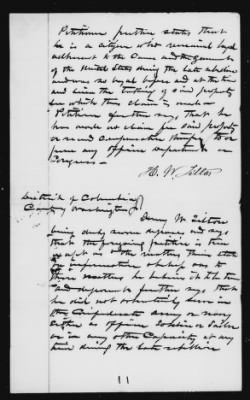 Petitioner further states that
he is a citizen who remained loyal
adherent to the Cause and the Government
of the United States during the late rebellion
and was so loyal before and at the time
and since the taking of said property
for which this claim is made —
Petitioner further says that he
has made no claim for said property
or received compensation therefor
from any officer department or
Congress —
H. W. Tilton
District of Columbia
County Washington
Henry W Tilton
being duly sworn deposes and says
that the foregoing petition is true
except as to the matters therein stated
on information and belief and as to
those matters he believes it to be true
and deponent further says that
he did not voluntarily serve in
the Confederate army or navy
either as officer soldier or sailor
or in any other Capacity at any
time during the late rebellion
11